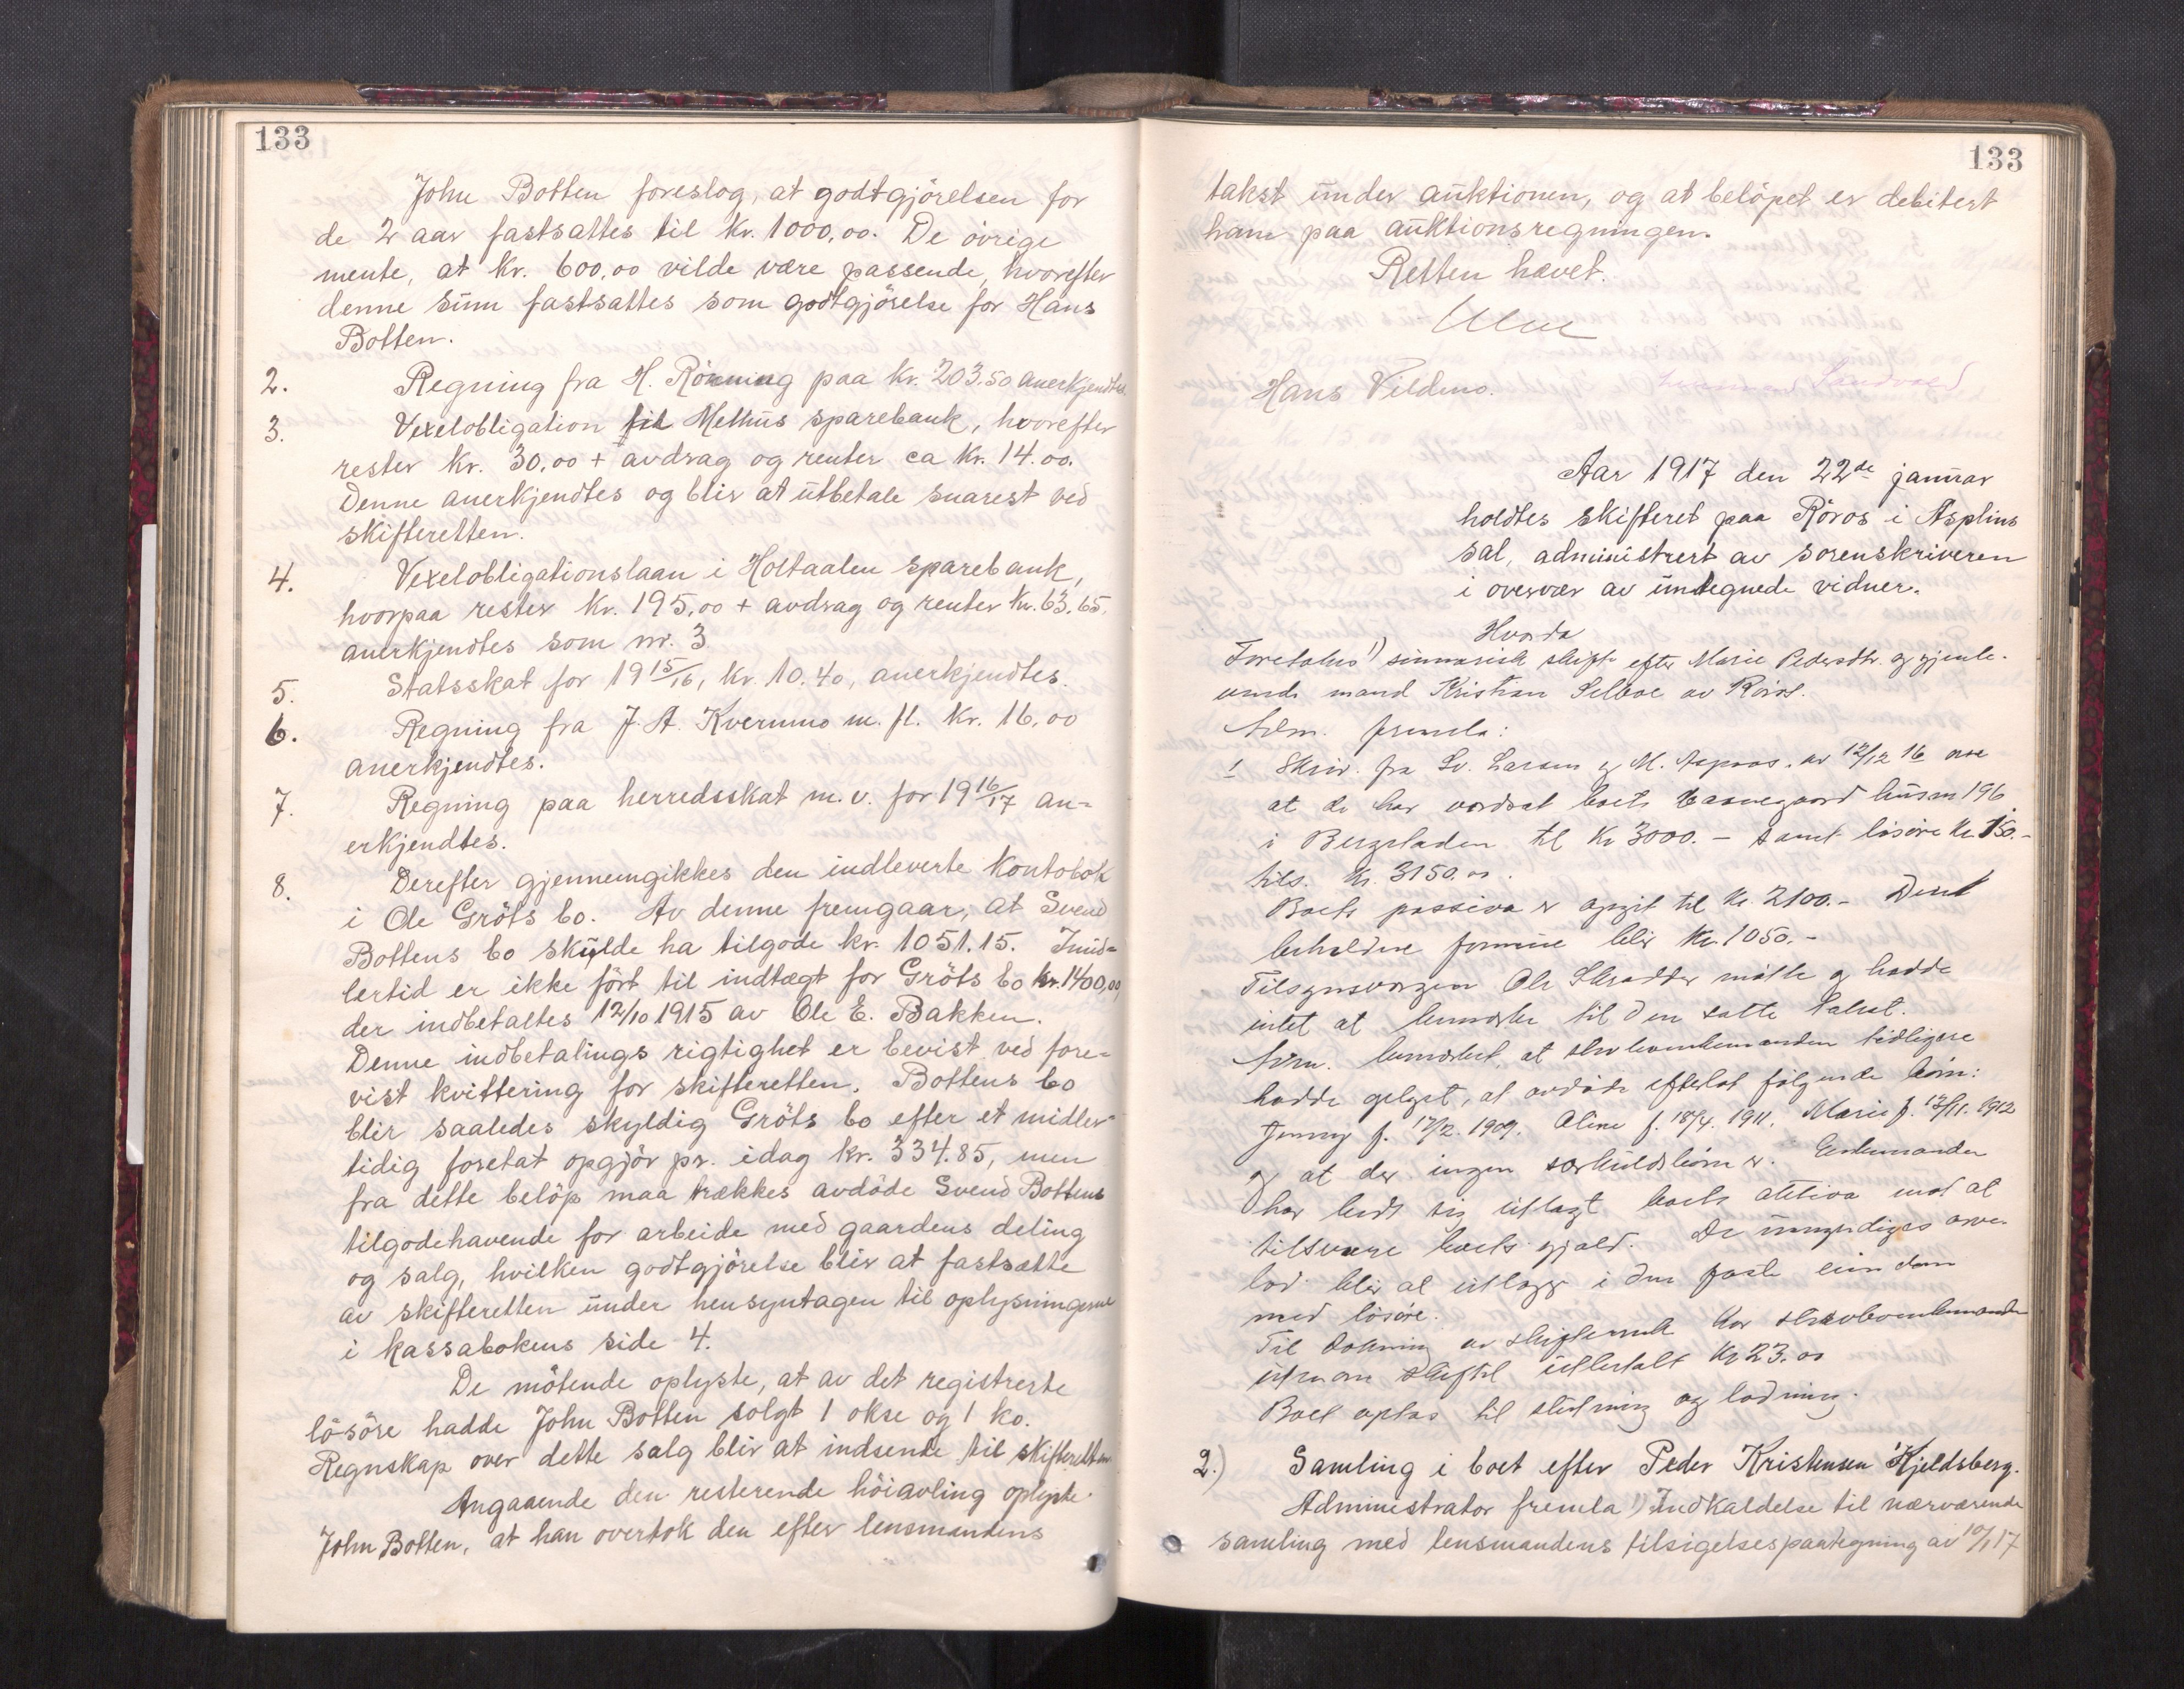 133
John Botten foreslog, at godtgjörelsen for
de 2 aar fastsattes til kr. 1000,00. De övrige
mente, at kr. 600,00 vilde være passende, hvorefter
denne sum fastsattes som godtgjörelse for Hans
Botten.
2. Regning fra H. Rönning paa kr. 203,50 anerkjendtes.
3. Vexelobligation til Melhus sparebank, hvorefter
rester kr. 30,00 + avdrag og renter ca kr. 14.00.
Denne anerkjendtes og blir at utbetale snarest ved
skifteretten.
4. Vexelobligationslaan i Holtaalen Sparebank,
hvorpaa rester kr. 195,00 + avdrag og renter kr. 63.65.
anerkjendtes som nr. 3
5. Statsskat for 19 15/16, kr. 10.40, anerkjendtes.
6. Regning fra J. A. Kvernmo m. fl. kr. 16,00
anerkjendtes.
7. Regning paa herredsskat m. v. for 19 16/17 an-
erkjendtes.
8. Derefter gjennemgikkes den indleverte kontobok
i Ole Gröts bo. Av denne fremgaar, at Svend
Bottens bo skulde ha tilgode kr. 1051.15. Imid-
lertid er ikke fört til indtægt for Gröts bo kr. 1400,00,
der indbetaltes 12/10 1915 av Ole E. Bakken.
Denne indbetalings rigtighet er bevist ved fore-
vist kvittering for skifteretten. Bottens bo
blir saaledes skyldig Gröts bo efter et midler-
tidig foretat opgjör pr. idag kr. 334.85, men
fra dette belöp maa trækkes avdöde Svend Bottens
tilgodehavende for arbeide med gaardens deling
og salg, hvilken godtgjörelse blir at fastsætte
av skifteretten under hensyntagen til oplysningerne
i kassabokens side 4.
De mötende oplyste, at av det registrerte
lösöre hadde John Botten solgt 1 okse og 1 ko.
Regnskap over dette salg blir at indsende til skifteretten.
Angaaende den resterende höiavling oplyste
John Botten, at han overtok den efter lensmandens
133
takst under auktionen, og at belöpet er debitert
ham paa auktionsregningen.
Retten hævet.
Hans Vildmo. Sandvold
Aar 1917 den 22de januar
holdtes skifteret paa Röros i Asplins
sal, administrert av sorenskriveren
i overvær av undtegnede vidner.
Hvorda
Foretokes 1) summarisk skifte efter Marie Pedersdtr. og gjenle-
vende mand Kristian Selboe av Röros.
Adm. fremla:
1 Skriv. fra Sv. Larsen og M. Aspaas av 12/12 16 om
at de har verdsat boets gaard husnr 196
i Bergstaden til Kr 3000.- samt lösöre Kr 150.-
tils. Kr. 3150.00.
Boets passiva er opgit til Kr. 2100.- Dens
beholdne formue blir Kr. 1050.-
Tilsynsvergen Ole Skrødder mötte og hadde
intet at bemerke til den satte takst.
Adm. bemerket, at enkemanden tidligere
hadde oplyst, at avdöde efterlot følgende börn:
Jenny f. 17/2. 1909. Aline f. 18/4. 1911. Marie f. 13/11. 1912
og at der ingen særkuldsbörn er. Enkemanden
har bedt sig utlagt boets aktiva mot at
tilsvare boets gjæld. De umyndiges arve-
lod blir at utlægge i den faste eiendom
med lösöre.
Til dekning av skifteomk har enkemanden
utbetalt Kr 23.00
Boet optas til slutning og lodning.
2.) Samling i boet efter Peder Kristensen Kjeldsberg.
Administrator fremla 1) Indkaldelse til nærværende
samling med lensmandens tilsigelsespaategning av 10/1 17